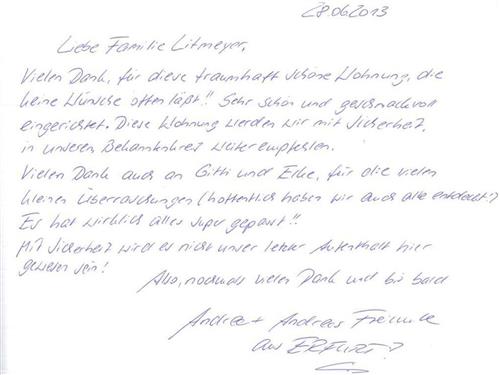 28.06.2013
Liebe Familie Litmeyer,
Vielen Dank, für diese traumhaft schöne Wohnung, die
keine Wünsche offen läßt!! Sehr schön und geschmackvoll
eingerichtet. Diese Wohnung werden wir mit Sicherheit,
in unseren Bekanntenkreis weiter empfehlen.
Vielen Dank auch an Gitti und Elke, für die vielen
kleinen Überraschungen (hoffentlich haben wir auch alle entdeckt?)
Es hat wirklich alles super gepasst!!
Mit Sicherheit wird es nicht unser letzter Aufenthalt hier
gewesen sein!
Also, nochmals vielen Dank und bis bald
Andrea + Andreas
aus ERFURT